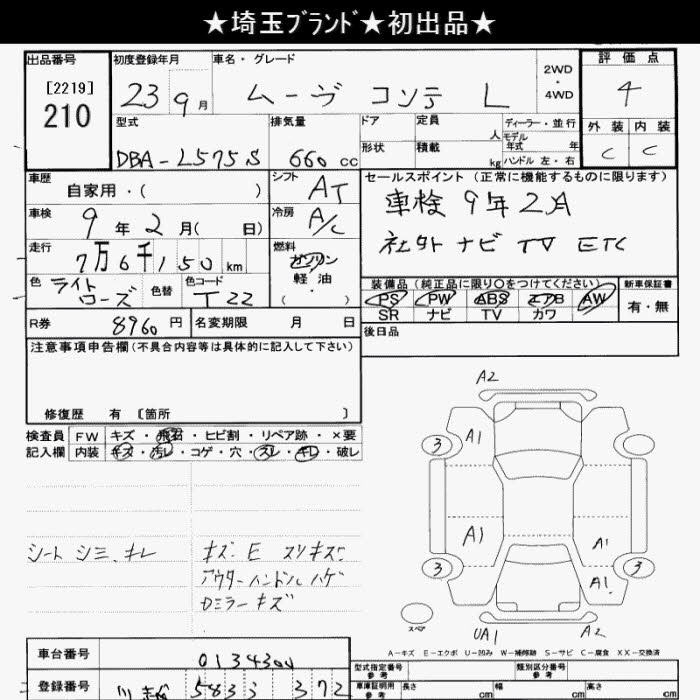 ★埼玉ﾌﾞﾗﾝﾄﾞ★初出品★
出品番号
[2219]
210
初度登録年月
23 9月
車名・グレード
ムーヴ コンテ L
2WD
・
4WD
評価点
4
外装 内装
C C
型式
DBA-L575S
排気量
660 cc
ドア
定員
人
形状
積載
kg
ディーラー・並行
モデル
年式 年
ハンドル 左・右
車歴
自家用・( )
シフト
AT
車検
9年2月( 日)
冷房
A/C
走行
7万6千150km
燃料
ガソリン
軽油
( )
色
ライト
ローズ
色替
色コード
T22
R券
8960円
名変期限 月 日
セールスポイント(正常に機能するものに限ります)
車検 9年2月
社外 ナビ TV ETC
装備品(純正品に限り○をつけてください)
PS PW ABS エアB AW
SR ナビ TV カワ
新車保証書
有・無
後日品
注意事項申告欄(不具合内容等は具体的に記入して下さい)
修復歴 有 [箇所 ]
検査員
記入欄
FW キズ・飛石・ヒビ割・リペア跡・×要
内装 キズ・汚レ・コゲ・穴・スレ・キレ・破レ
シート シミ キレ
キズ E スリキズ
アウターハンドル ハゲ
Dミラーキズ
A2
3 A1
A1 A1
3 A1 3
スペア
UA1 A2
A-キズ E-エクボ U-凹み W-補修跡 S-サビ C-腐食 XX-交換済
車台番号
0134304
登録番号
5833 372
型式指定番号
参考
類別区分番号
参考
車庫証明用
参考
長さ cm 幅 cm 高さ cm